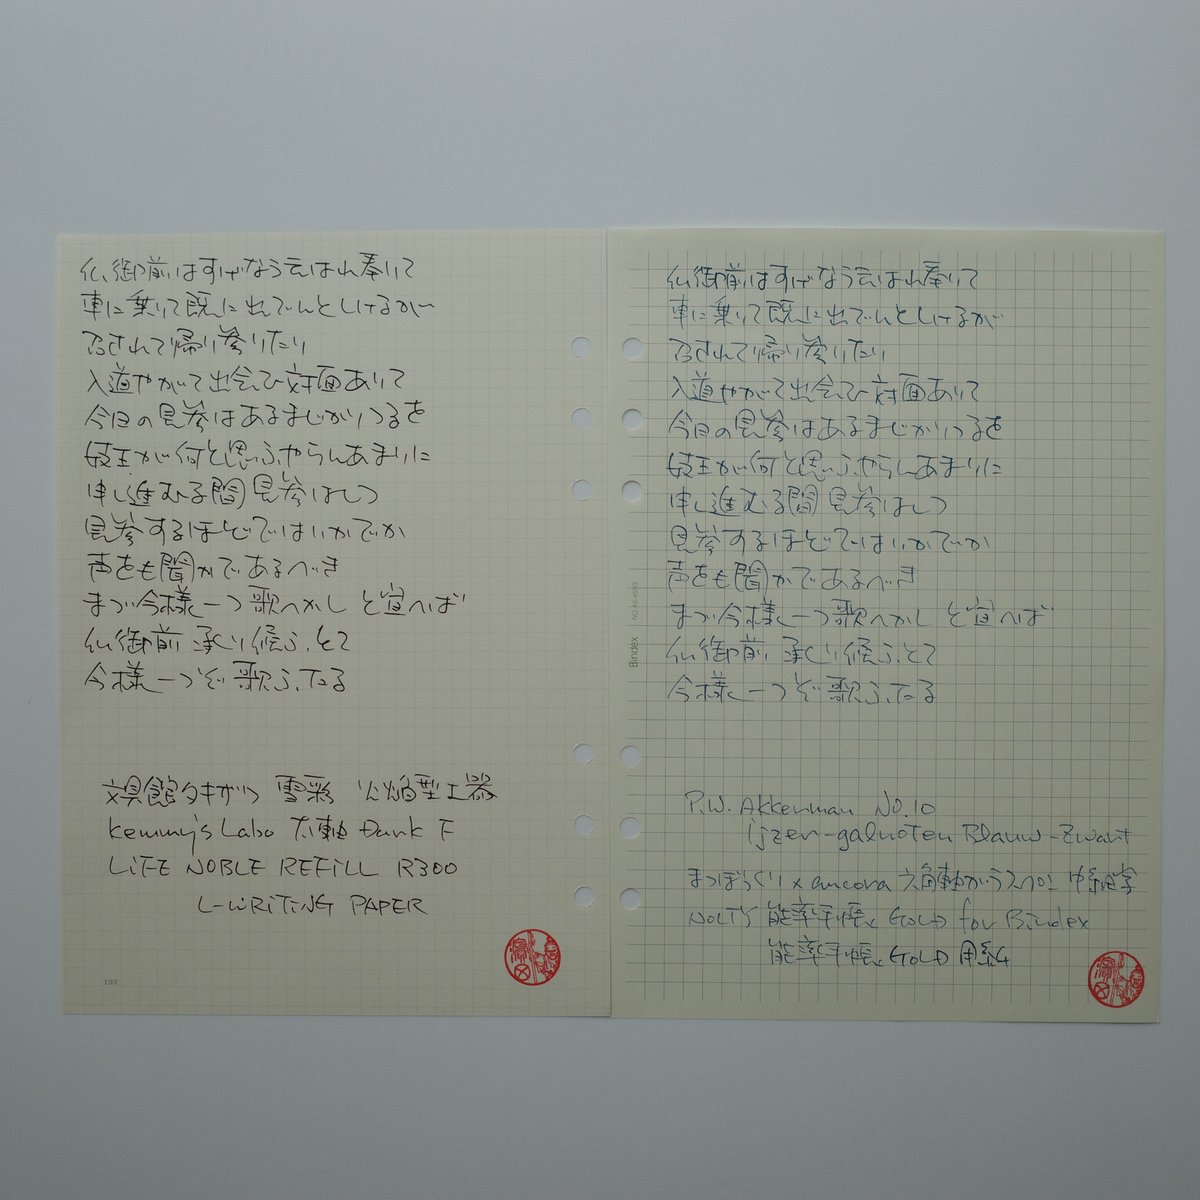 仏御前はすげなう云はれ奉りて
車に乗りて既に出でんとしけるが
召されて帰り参りたり
入道やがて出会ひ対面ありて
今日の見参はあるまじかりつるを
妓王が何と思ふやらんあまりに
申し進むる間見参はしつ
見参するほどではいかでか
声をも聞かであるべき
まづ今様一つ歌へかしと宣へば
仏御前承り候ふとて
今様一つぞ歌ふたる
文具館タキザワ 雪彩 火焔型土器
Kemmy's Labo 太軸 Dank F
LIFE NOBLE REFILL R300
L-WRITING PAPER
LIFE
仏御前はすげなう云はれ奉りて
車に乗りて既に出でんとしけるが
召されて帰り参りたり
入道やがて出会ひ対面ありて
今日の見参はあるまじかりつるを
妓王が何と思ふやらんあまりに
申し進むる間見参はしつ
見参するほどではいかでか
声をも聞かであるべき
まづ今様一つ歌へかしと宣へば
仏御前承り候ふとて
今様一つぞ歌ふたる
P.W. Akkerman No.10
ijzer-galnoten Blauw-Zwart
まつぼっくり×ancora 六角軸ガラスペン 中細字
NOLTY 能率手帳 GOLD for Bindex
能率手帳 GOLD 用紙
Bindex